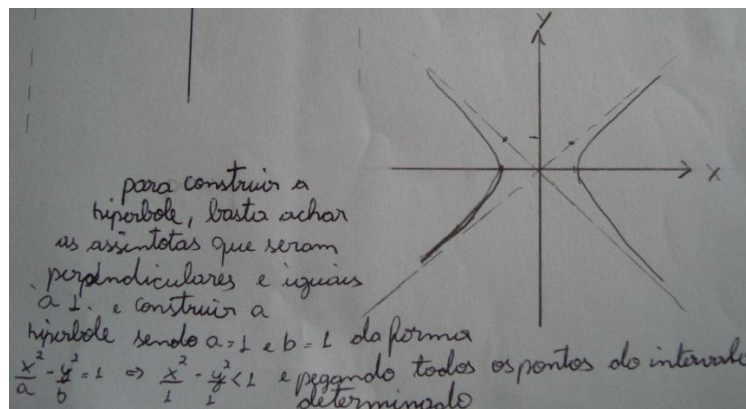 Y
X
para construir a
hiperbole, basta achar
as assintotas que seram
perpendiculares e iguais
a 1. e construir a
hiperbole sendo a=1 e b=1 da forma
x²/a - y²/b = 1 ⇒ x²/1 - y²/1 < 1 e pegando todos os pontos do intervalo
determinado